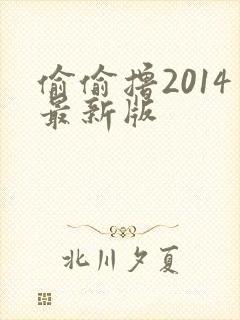 偷偷撸2014
最新版
北川夕夏